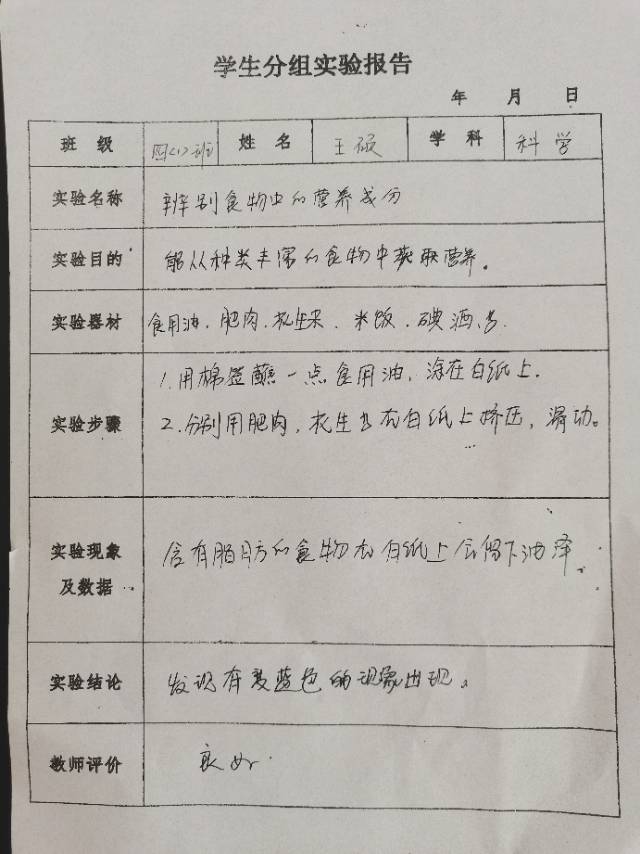 学生分组实验报告
年 月 日
班 级 四(1)班 姓 名 王硕 学 科 科学
实验名称 辨别食物中的营养成分
实验目的 能从种类丰富的食物中获取营养。
实验器材 食用油、肥肉、花生米、米饭、碘酒、等
1.用棉签蘸一点食用油,涂在白纸上.
实验步骤 2.分别用肥肉,花生等在白纸上挤压,滑动。
实验现象 含有脂肪的食物在白纸上会留下油泽。
及数据
实验结论 发现有变蓝色的现象出现。
教师评价 良好.